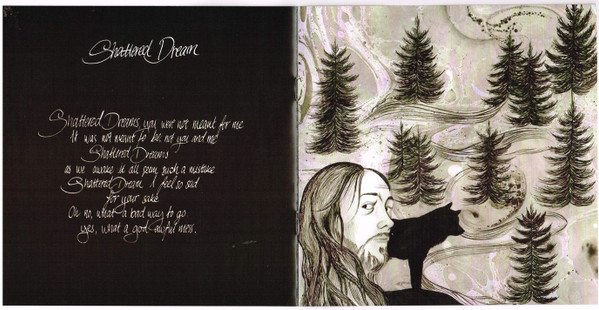 Shattered Dream
Shattered Dreams, you were not meant for me
It was not meant to be, not you and me
Shattered Dreams
as we awake it all seem such a mistake
Shattered Dream I feel so sad
for your sake
Oh no, what a bad way to go
yes, what a god awful mess.